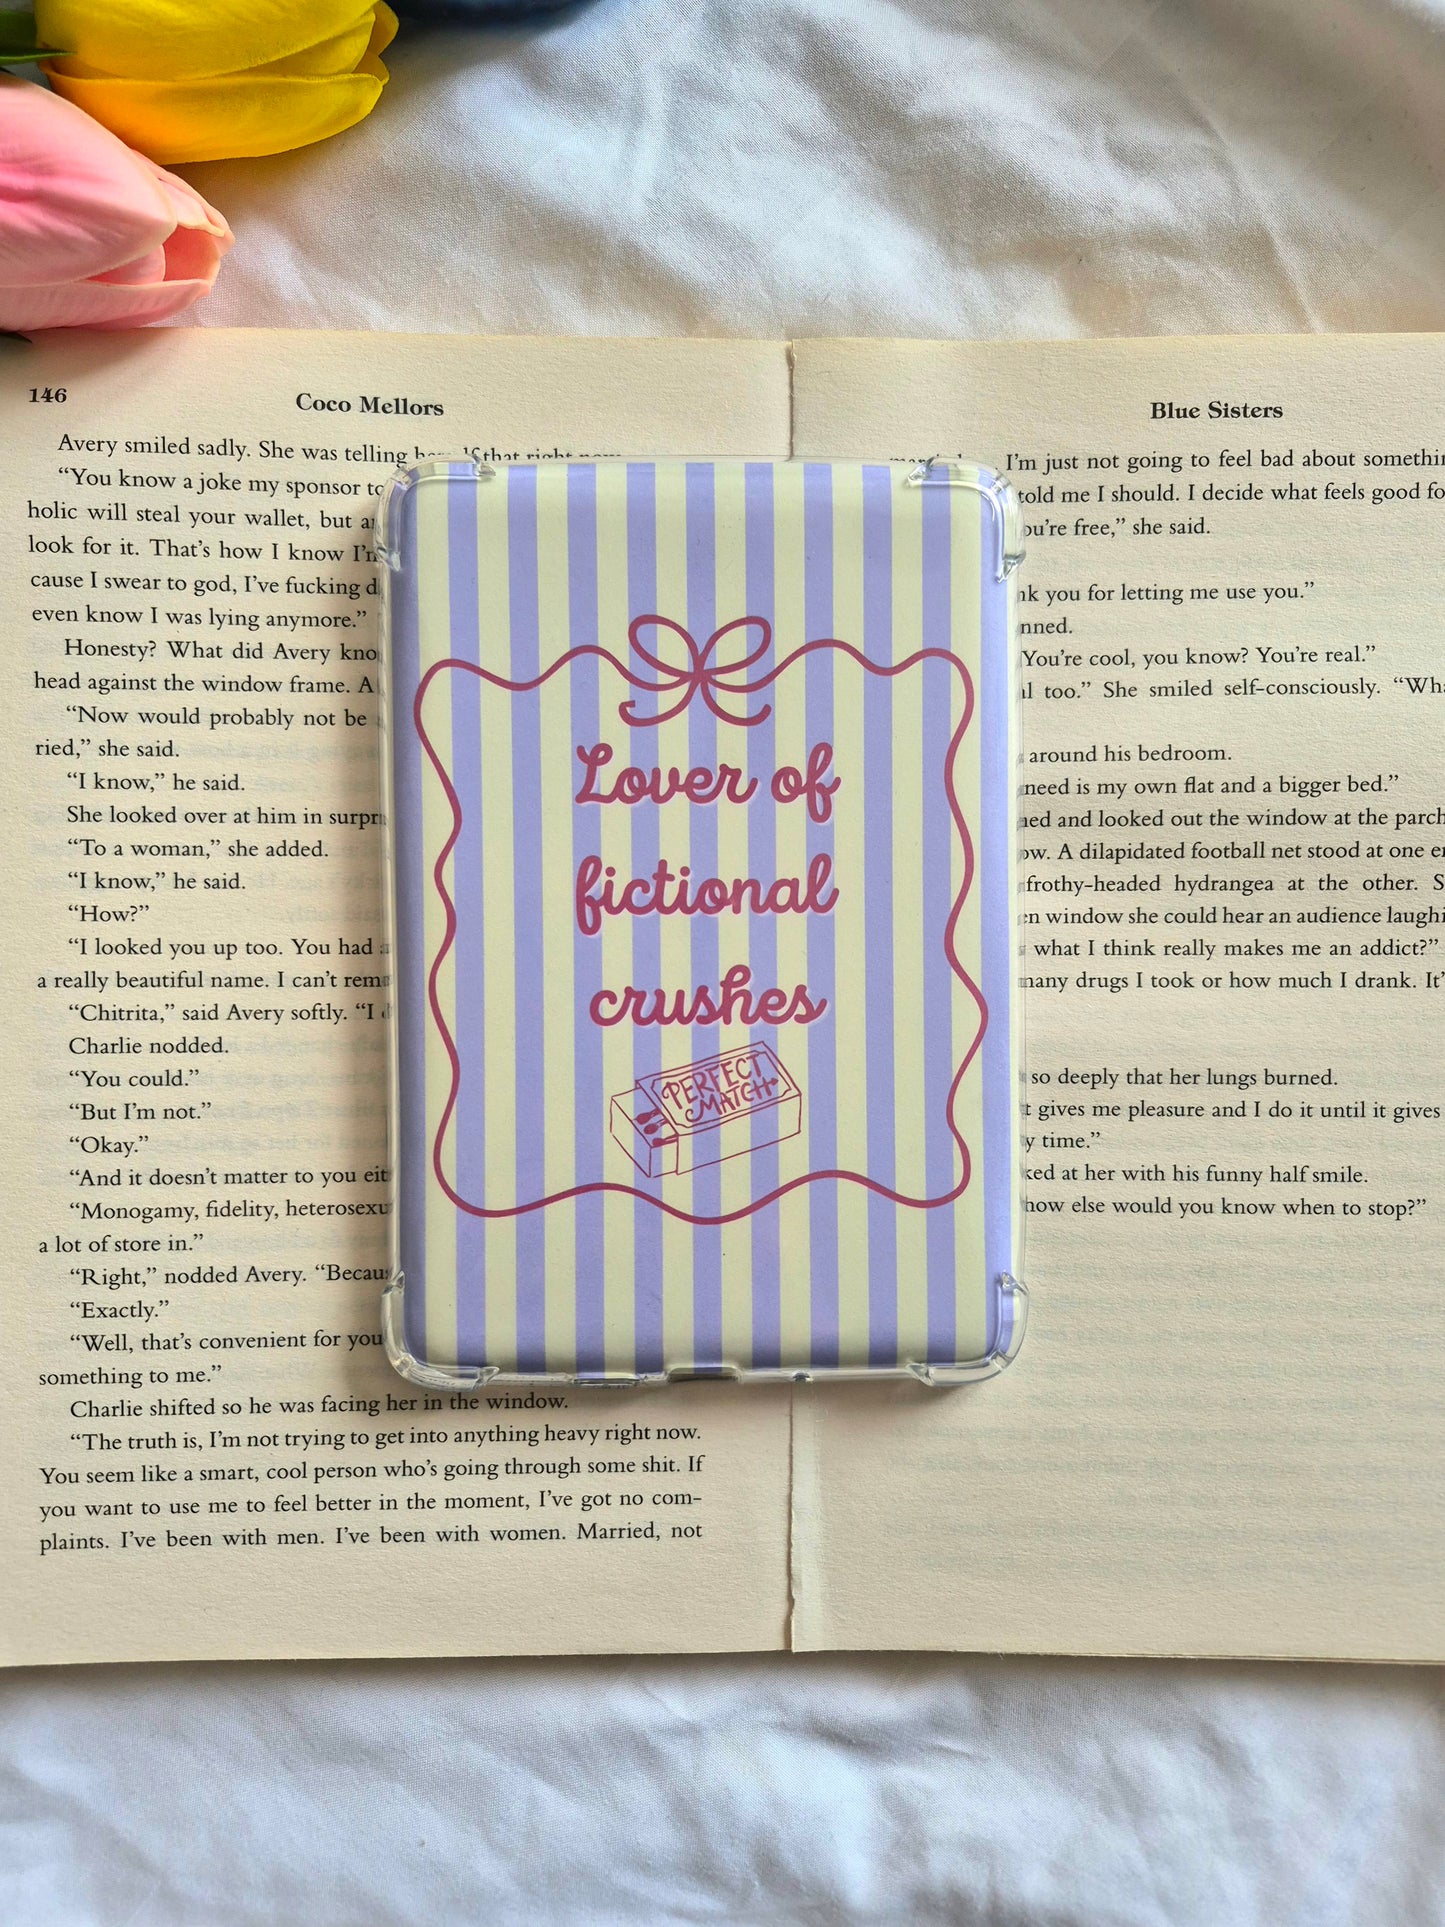 146
Coco Mellors
Avery smiled sadly. She was telling
“You know a joke my sponsor
holic will steal your wallet, but
look for it. That’s how I know
cause I swear to god, I’ve fucking
even know I was lying anymore.”
Honesty? What did Avery
head against the window frame. A
“Now would probably not be
ried,” she said.
“I know,” he said.
She looked over at him in
“To a woman,” she added.
“I know,” he said.
“How?”
“I looked you up too. You had
a really beautiful name. I can’t
“Chitrita,” said Avery softly. “I
Charlie nodded.
“You could.”
“But I’m not.”
“Okay.”
“And it doesn’t matter to you
“Monogamy, fidelity,
a lot of store in.”
“Right,” nodded Avery.
“Exactly.”
“Well, that’s convenient for you
something to me.”
Charlie shifted so he was facing her in the window.
“The truth is, I’m not trying to get into anything heavy right now.
You seem like a smart, cool person who’s going through some shit. If
you want to use me to feel better in the moment, I’ve got no com-
plaints. I’ve been with men. I’ve been with women. Married, not
Lover of
fictional
crushes
PERFECT
MATCH
Blue Sisters
I’m just not going to feel bad about
told me I should. I decide what feels good
you’re free,” she said.
you for letting me use you.”
You’re cool, you know? You’re real.”
too.” She smiled self-consciously.
around his bedroom.
need is my own flat and a bigger bed.”
and looked out the window at the
A dilapidated football net stood at one
frothy-headed hydrangea at the other.
window she could hear an audience
what I think really makes me an addict?”
many drugs I took or how much I drank.
so deeply that her lungs burned.
gives me pleasure and I do it until it gives
time.”
at her with his funny half smile.
how else would you know when to stop?”